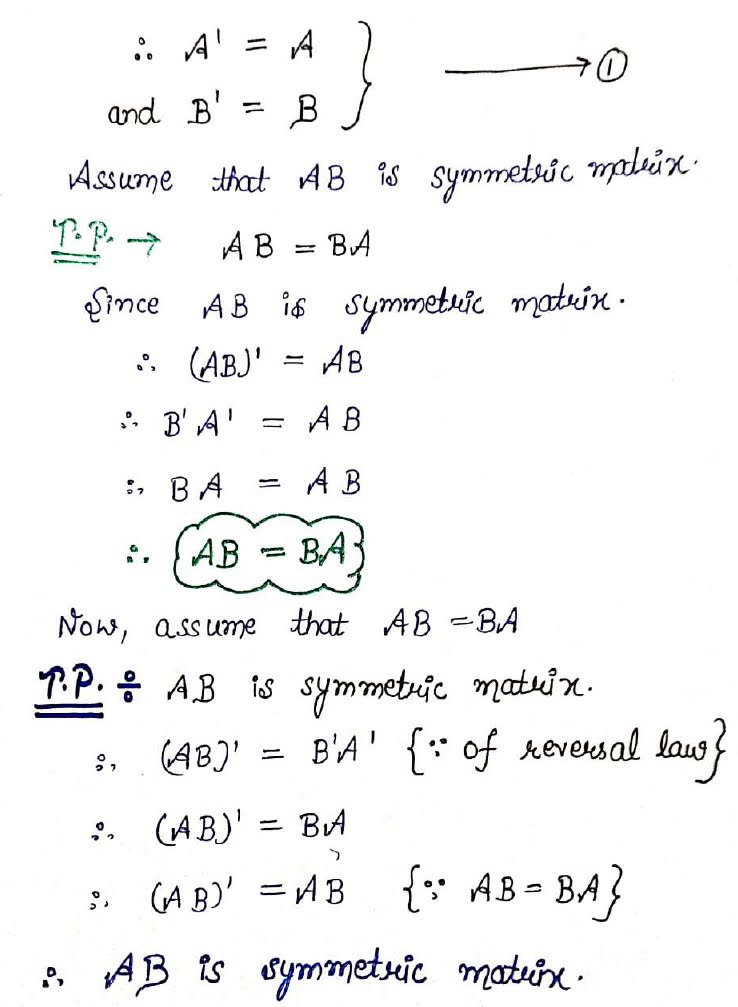 ∴ A' = A
and B' = B } ⟶ ①
Assume that AB is symmetric matrix.
T.P. → AB = BA
Since AB is symmetric matrix.
∴ (AB)' = AB
∴ B'A' = AB
∴ BA = AB
∴ AB = BA
Now, assume that AB = BA
T.P. ÷ AB is symmetric matrix.
∴ (AB)' = B'A' {∵ of reversal law}
∴ (AB)' = BA
∴ (AB)' = AB {∵ AB = BA}
∴ AB is symmetric matrix.